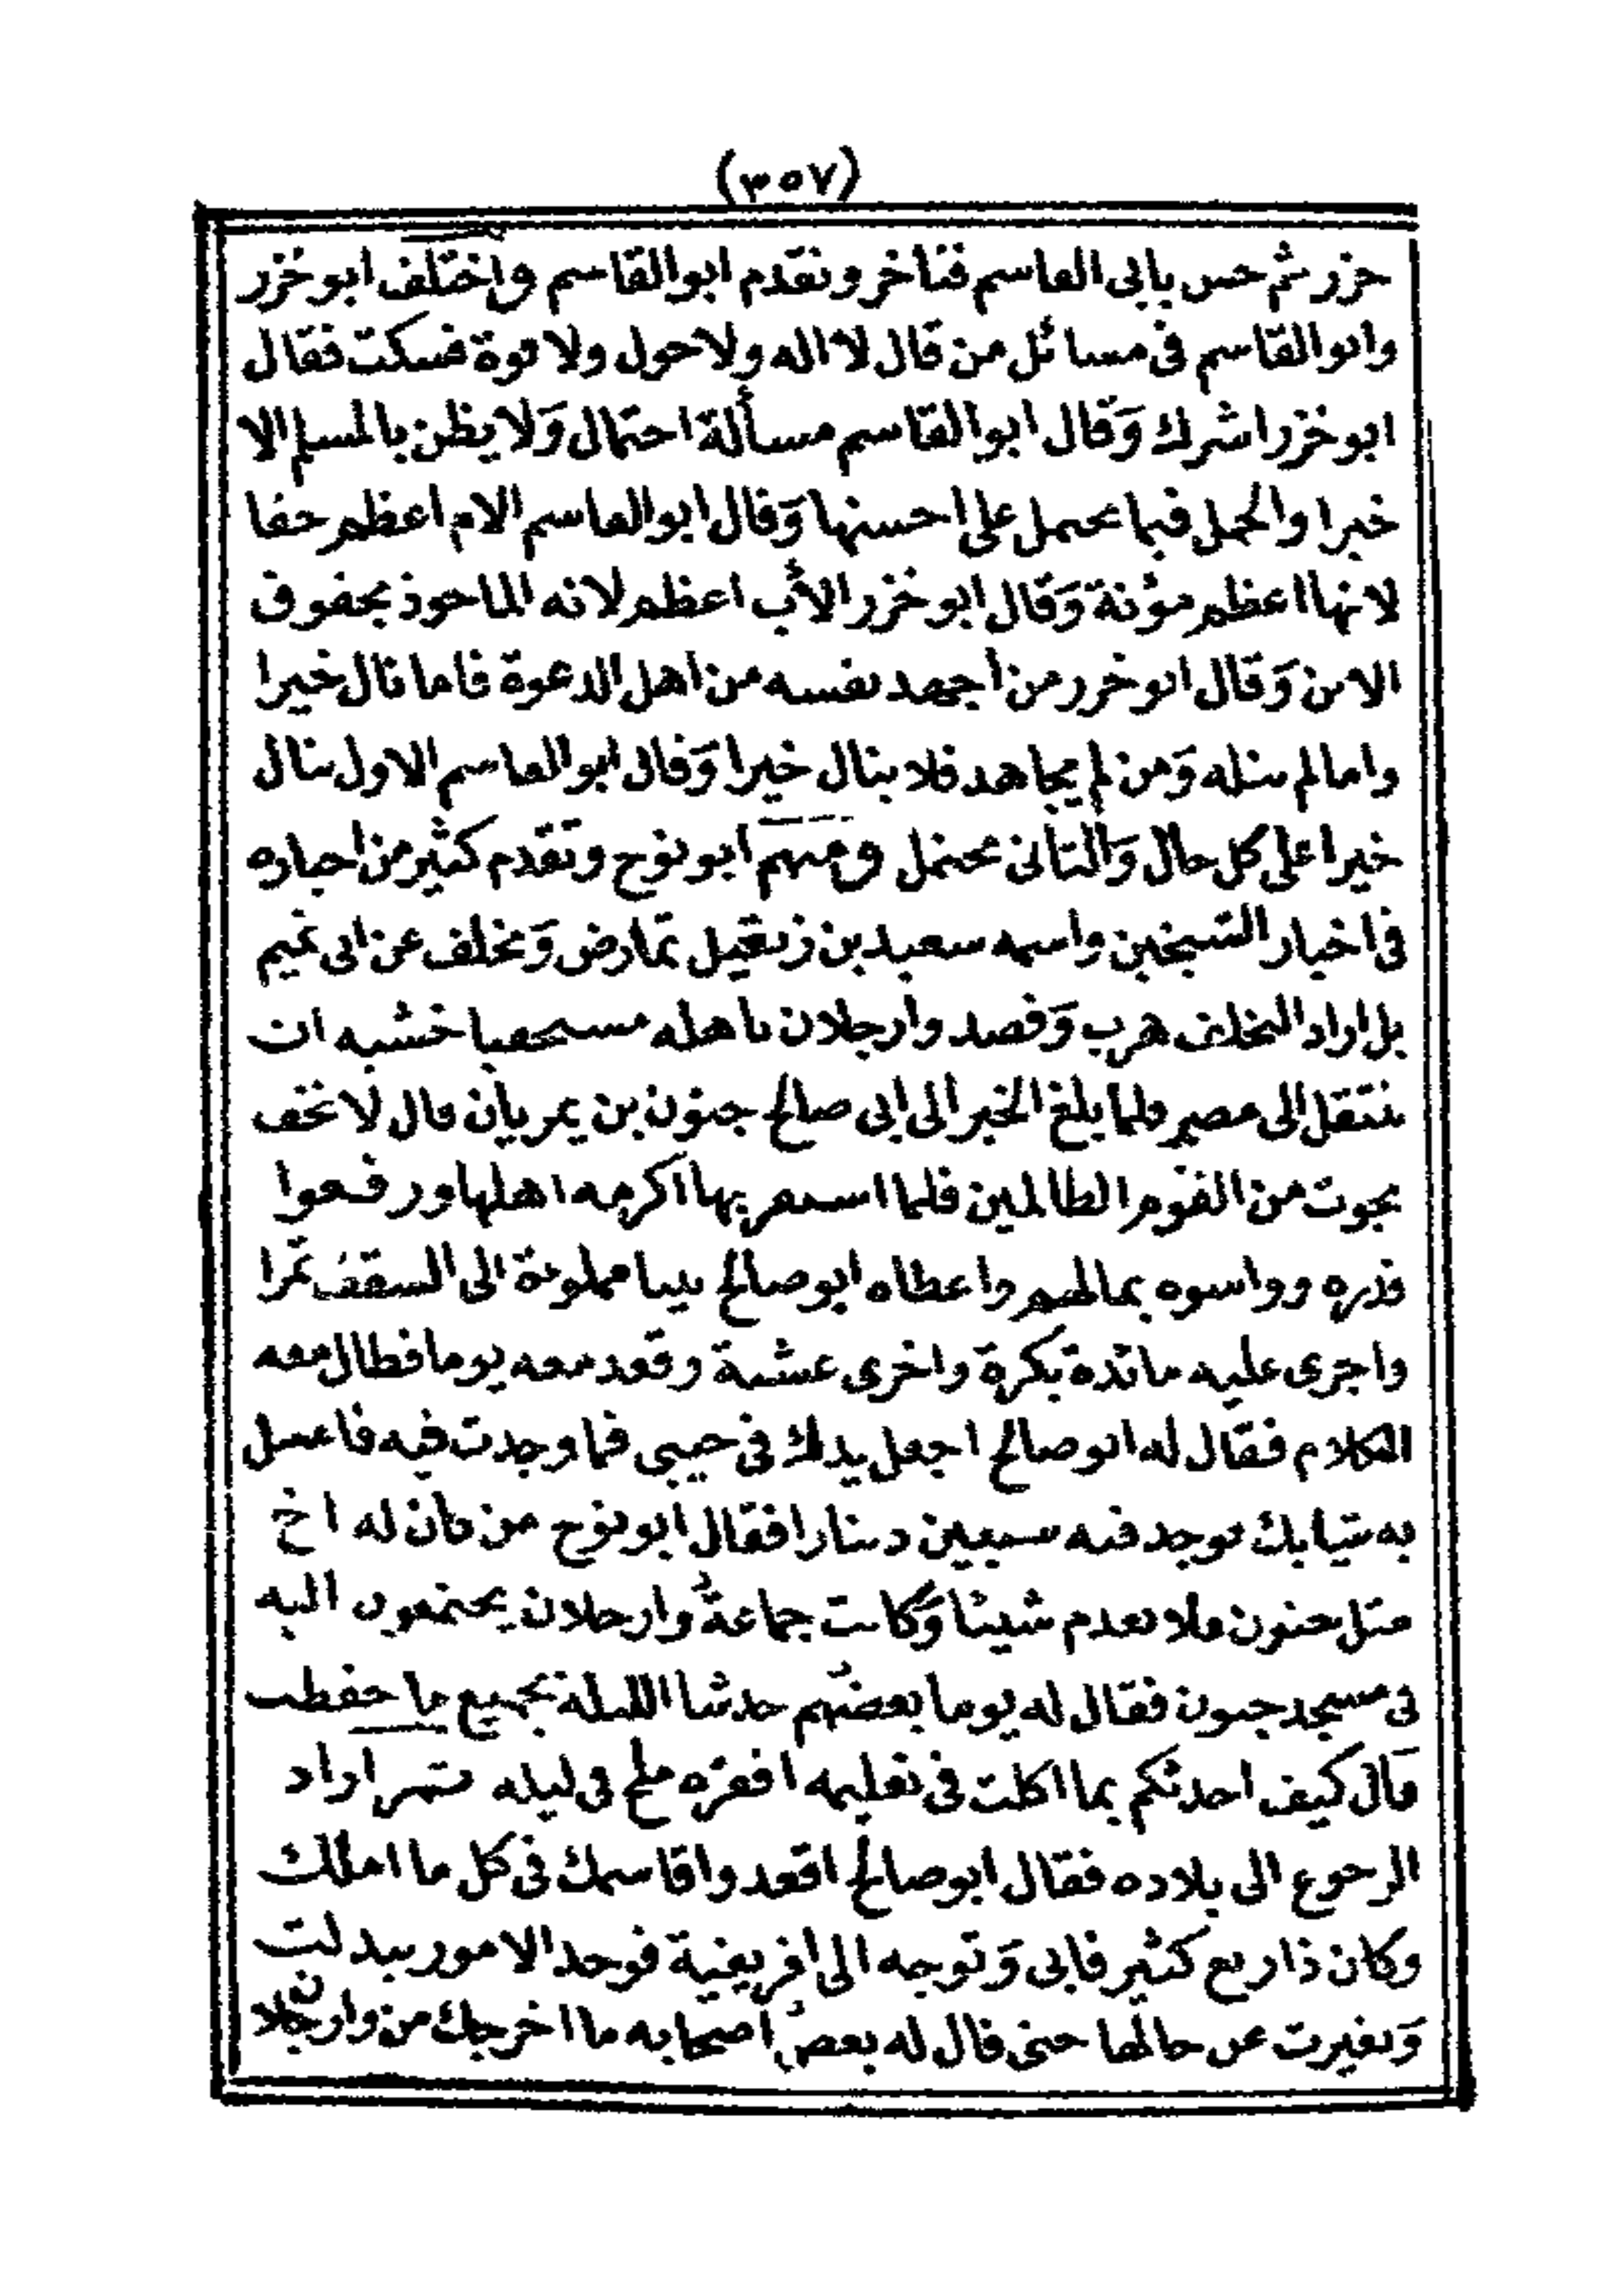 (٣٥٧)
خزر ثم حس بابى القاسم فتأخر وتقدم ابوالقاسم واختلف ابوخزر
وابوالقاسم فى مسائل من قال لا اله ولاحول ولا قوة فسكت فقال
ابوخزر اشرك وقال ابوالقاسم مسألة احتمال ولا يظن بالمسلم الا
خيرا والحمل فيما يحتمل على احسنها وقال ابوالقاسم الام اعظم حقا
لانها اعظم مؤنة وقال ابوخزر الأب اعظم لانه الماخوذ بحقوق
الابن وقال ابوخزر من اجهد نفسه من اهل الدعوة فاما نال خيرا
واما لم ينله ومن لم يجاهد فلا ينال خيرا وقال ابوالقاسم الاول ينال
خيرا على كل حال والثانى محتمل ومنهم ابونوح وتقدم كثير من اخباره
فى اخبار الشيخين واسمه سعيد بن زنغيل تمارض وتخلف عن ابى تميم
بل اراد التخلف هرب وقصد وارجلان باهله مستخفيا خشيه ان
ينتقل الى مصر فلما بلغ الخبر الى ابى صالح جنون بن يمريان قال لا تخف
نجوت من القوم الظالمين فلما استقر بها اكرمه اهلها ورفعوا
قدره وواسوه بمالهم واعطاه ابوصالح بيتا مملوءة الى السقف تمرا
واجرى عليه مائدة بكرة واخرى عشية وقعد معه يوما فطال معه
الكلام فقال له ابوصالح اجعل يدك فى جيبى فما وجدت فيه فاغسل
به ثيابك فوجد فيه سبعين دينارا فقال ابونوح من كان له اخ
مثل جنون فلا يعدم شيئا وكانت جماعة وارجلان يجتمعون اليه
فى مسجد جنون فقال له يوما بعضهم حدثنا الليلة بجميع ما حفظت
قال كيف احدثكم بما اكلت فى تعليمه اقفزه ملح فى ليله ثم اراد
الرجوع الى بلاده فقال ابوصالح اقعد واقاسمك فى كل ما املك
وكان ذا ريع كثير فابى وتوجه الى افريقية فوجد الامور بدلت
وتغيرت عن حالها حتى قال له بعض اصحابه ما اخرجك من وارجلان